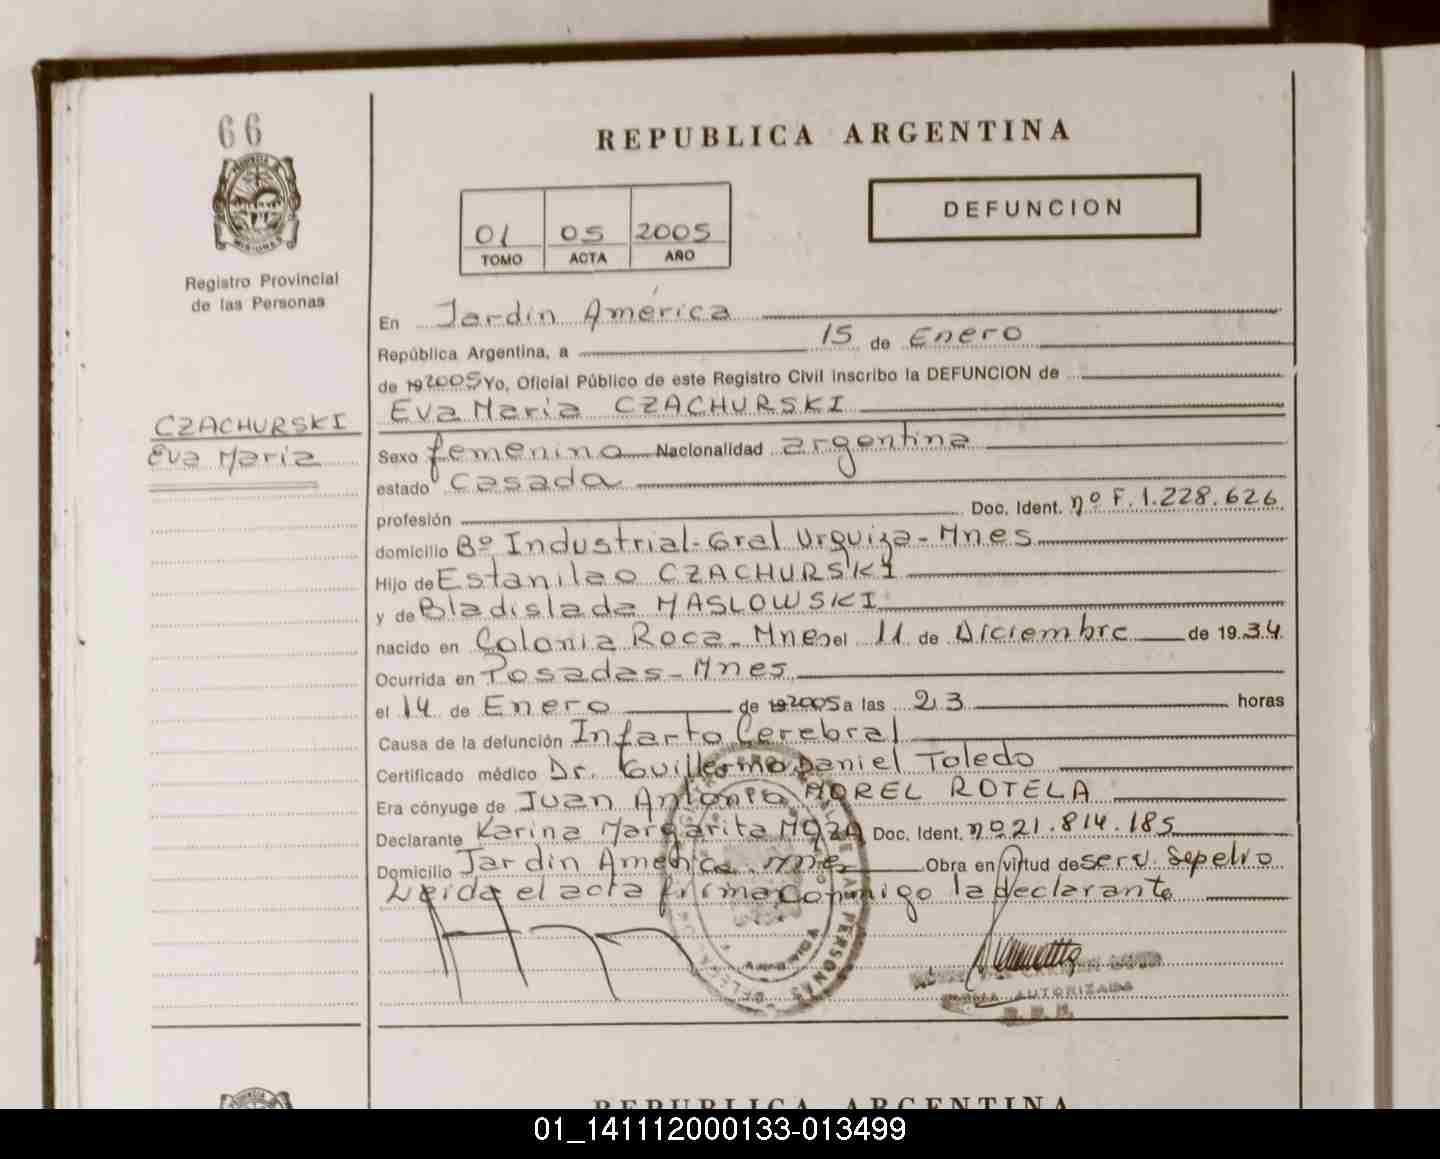 66
REPUBLICA ARGENTINA
DEFUNCION
01 05 2005
TOMO ACTA AÑO
Registro Provincial
de las Personas
CZACHURSKI
Eva María
En Jardín América
República Argentina, a 15 de Enero
de 19 2005 Yo, Oficial Público de este Registro Civil inscribo la DEFUNCION de
Eva Maria CZACHURSKI
Sexo femenino Nacionalidad argentina
estado casada
profesión Doc. Ident. nº F. 1.228.626
domicilio Bº Industrial-Gral Urquiza-Mnes
Hijo de Estanilao CZACHURSKI
y de Bladislada MASLOWSKI
nacido en Colonia Roca-Mnes el 11 de Diciembre de 19 34
Ocurrida en Posadas-Mnes
el 14 de Enero de 19 2005 a las 23 horas
Causa de la defunción Infarto Cerebral
Certificado médico Dr. Guillermo Daniel Toledo
Era cónyuge de Juan Antonio MOREL ROTELA
Declarante Karina Margarita Doc. Ident. nº 21.814.185
Domicilio Jardín America Obra en virtud de serv. Sepelio
Leida el acta firma conmigo la declarante
PERSONAS
AUTORIZADA
REPUBLICA ARGENTINA
01_141112000133-013499